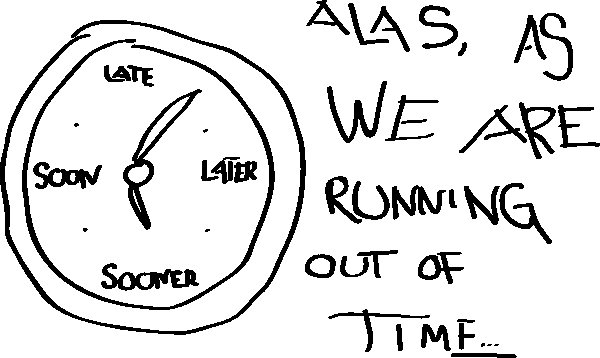 LATE
SOON
LATER
SOONER
ALAS, AS
WE ARE
RUNNING
OUT OF
TIME...